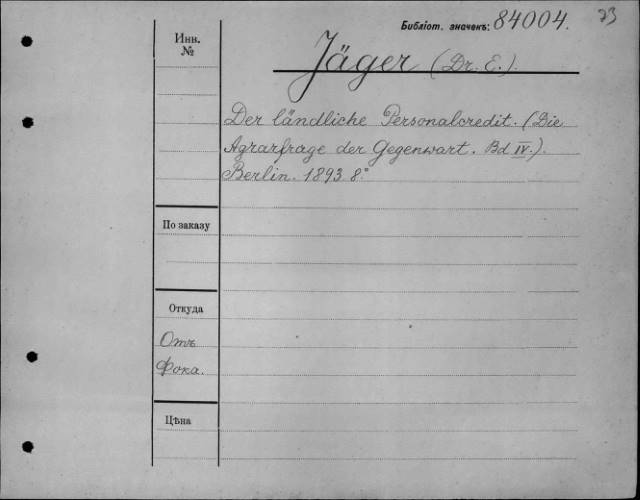 Библіот. значекъ: 84004.
Инв.
№
Jäger (Dr. E.).
Der ländliche Personalcredit. (Die
Agrarfrage der Gegenwart. Bd IV.).
Berlin. 1893. 8°.
По заказу
Откуда
Отъ
Фока.
Цѣна